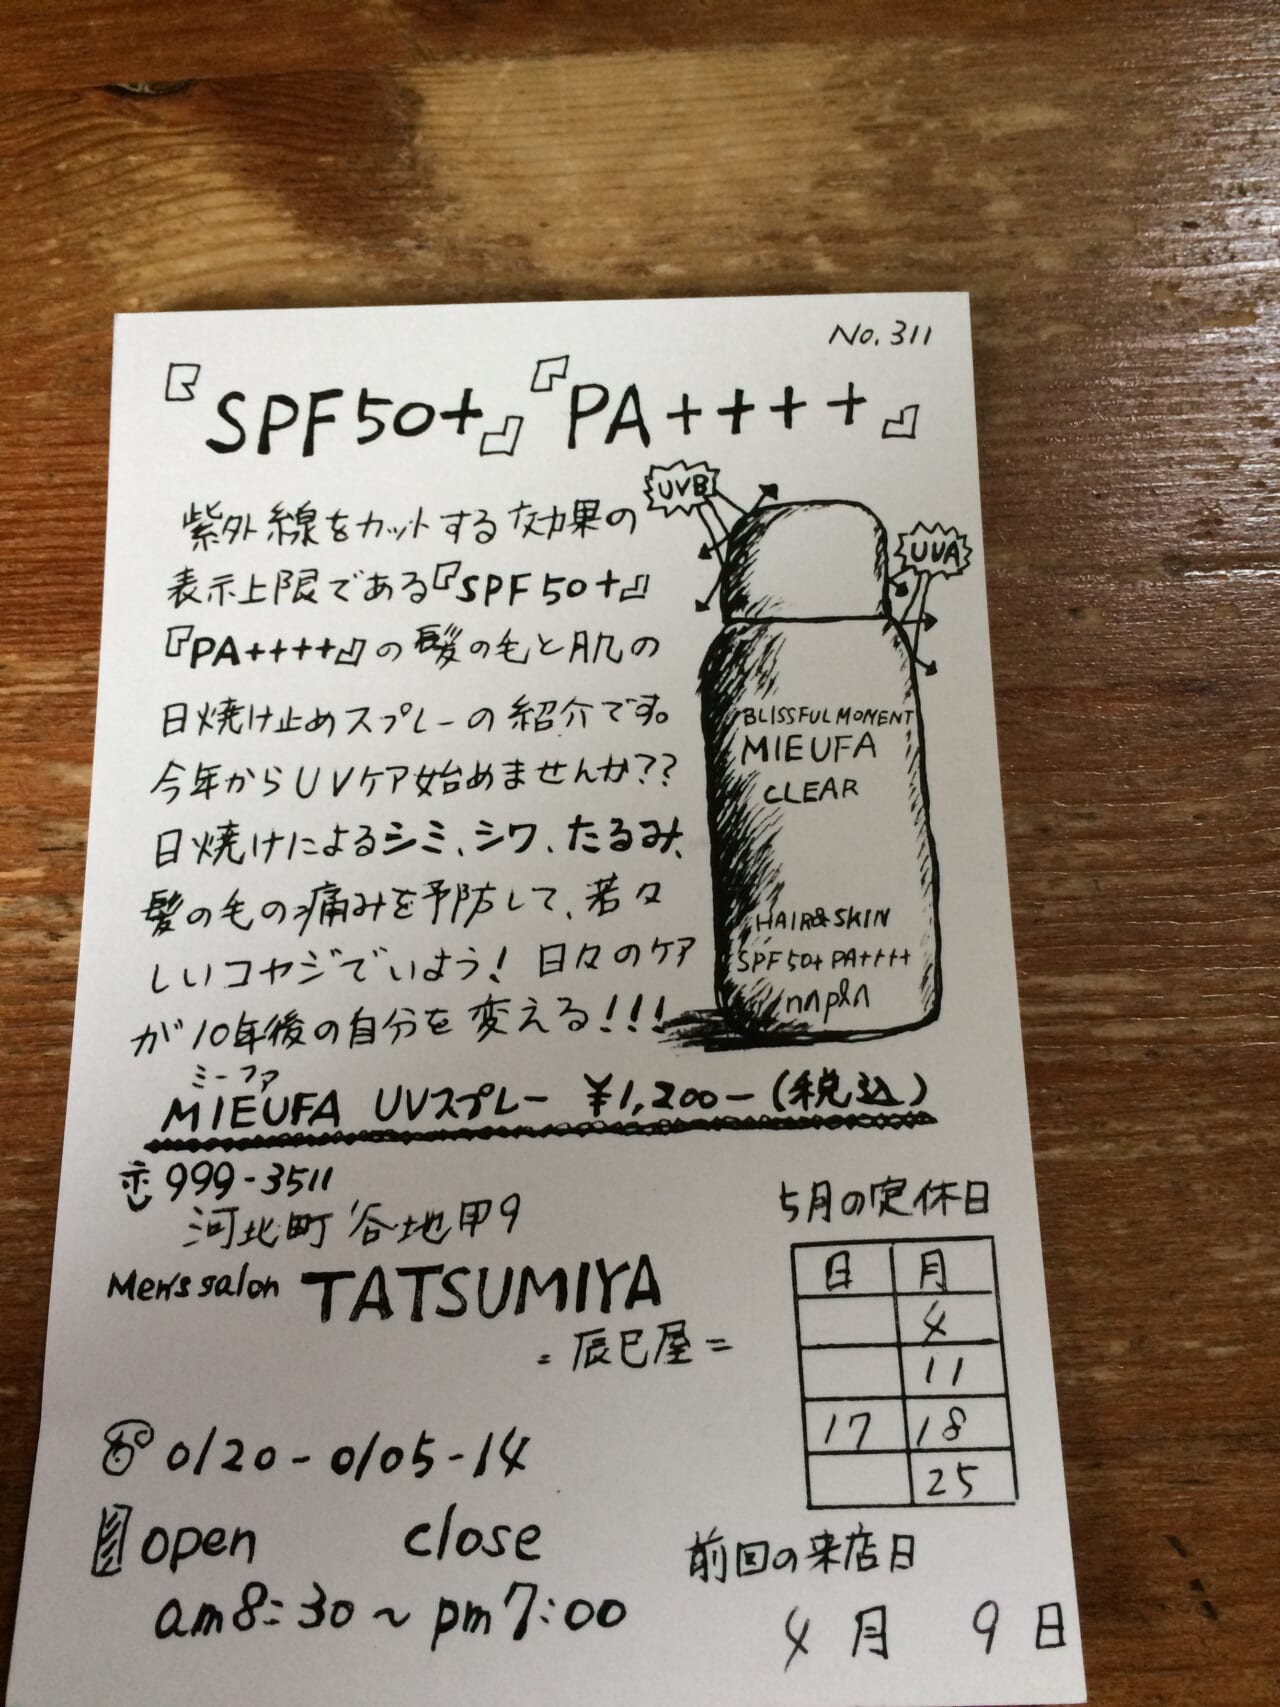 No.311
『SPF50+』『PA++++』
紫外線をカットする効果の
表示上限である『SPF50+』
『PA++++』の髪の毛と肌の
日焼け止めスプレーの紹介です。
今年からUVケア始めませんか??
日焼けによるシミ、シワ、たるみ、
髪の毛の痛みを予防して、若々
しいコヤジでいよう!日々のケア
が10年後の自分を変える!!!
UVB
UVA
BLISSFUL MOMENT
MIEUFA
CLEAR
HAIR&SKIN
SPF50+ PA++++
ミーファ
MIEUFA UVスプレー ¥1,200-(税込)
999-3511
河北町谷地甲9
Men's salon TATSUMIYA
=辰巳屋=
0120-0105-14
open close
am8:30~pm7:00
5月の定休日
日 月
4
11
17 18
25
前回の来店日
4月 9日